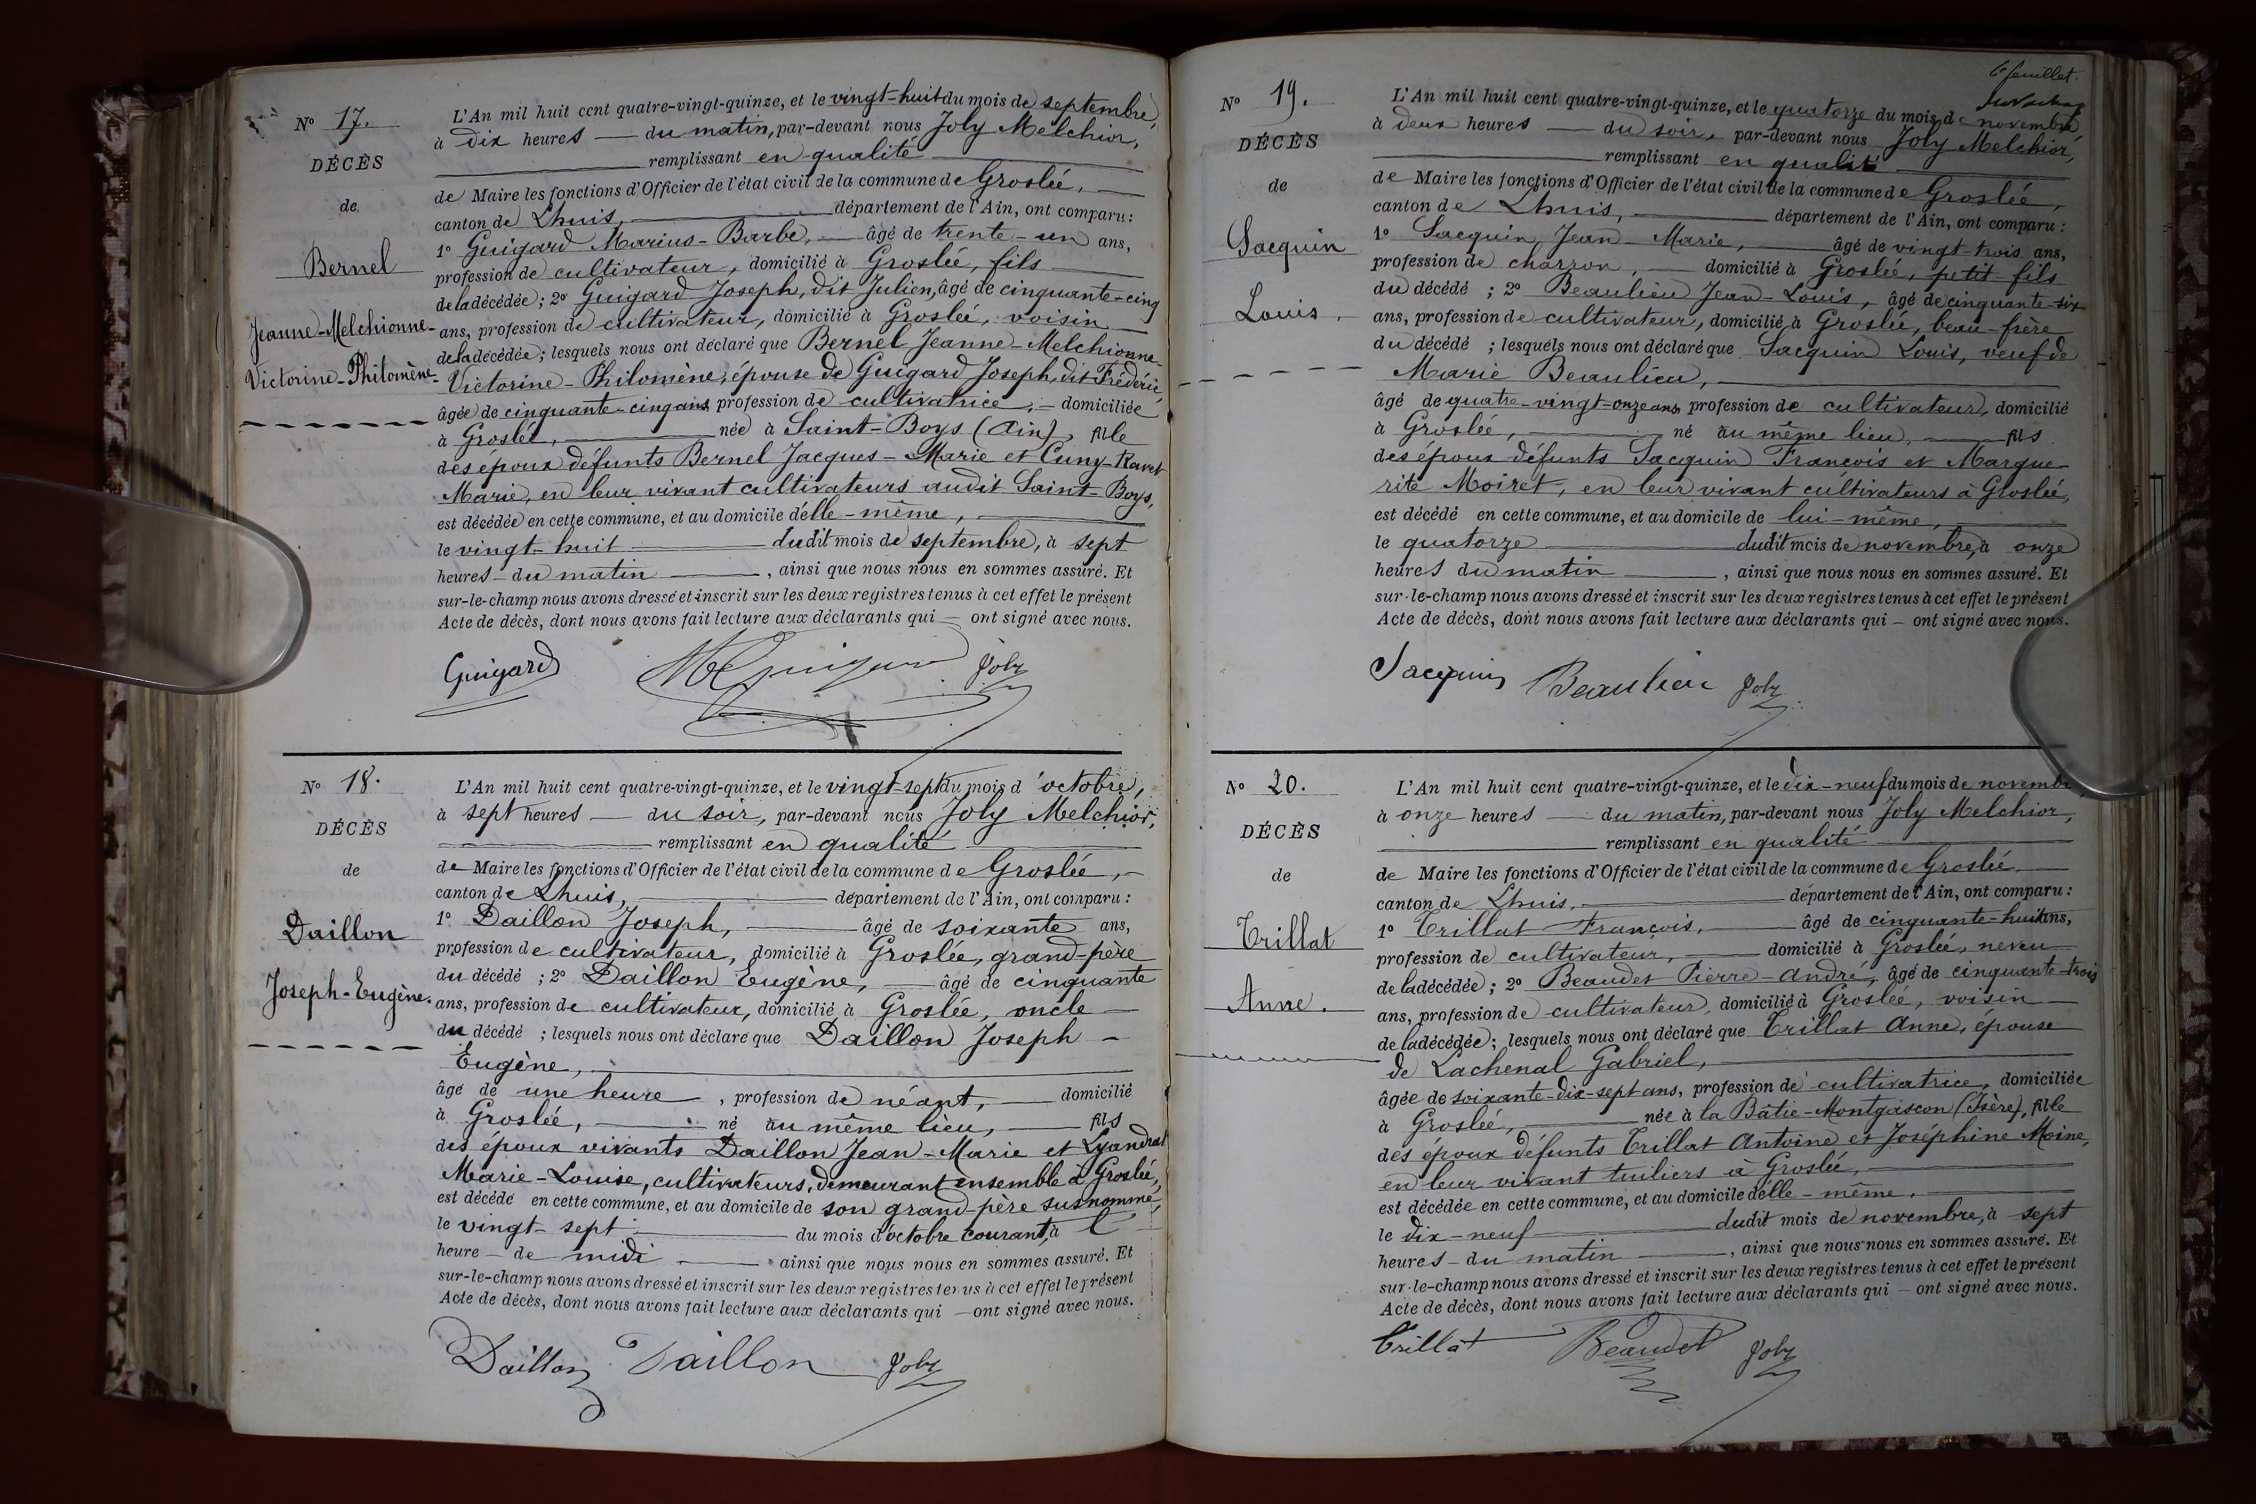 N° 17.
DÉCÈS
de
Bernel
Jeanne-Melchionne-
Victorine-Philomène-
L'An mil huit cent quatre-vingt-quinze, et le vingt-huit du mois de septembre,
à dix heures — du matin, par-devant nous Joly Melchior,
remplissant en qualité
de Maire les fonctions d'Officier de l'état civil de la commune de Groslée,
canton de Lhuis, département de l'Ain, ont comparu :
1° Guigard Marius-Barbe, âgé de trente-un ans,
profession de cultivateur, domicilié à Groslée, fils
de la décédée ; 2° Guigard Joseph, dit Julien, âgé de cinquante-cinq
ans, profession de cultivateur, domicilié à Groslée, voisin
de la décédée ; lesquels nous ont déclaré que Bernel Jeanne-Melchionne-
Victorine-Philomène, épouse de Guigard Joseph, dit Frédéric,
âgée de cinquante-cinq ans, profession de cultivatrice, domiciliée
à Groslée, née à Saint-Boys (Ain), fille
des époux défunts Bernel Jacques-Marie et Cuny-Ravet
Marie, en leur vivant cultivateurs audit Saint-Boys,
est décédée en cette commune, et au domicile d'elle-même,
le vingt-huit dudit mois de septembre, à sept
heures du matin, ainsi que nous nous en sommes assuré. Et
sur-le-champ nous avons dressé et inscrit sur les deux registres tenus à cet effet le présent
Acte de décès, dont nous avons fait lecture aux déclarants qui — ont signé avec nous.
Guigard Guigard Joly
N° 18.
DÉCÈS
de
Daillon
Joseph-Eugène.
L'An mil huit cent quatre-vingt-quinze, et le vingt-sept du mois d'octobre,
à sept heures — du soir, par-devant nous Joly Melchior,
remplissant en qualité
de Maire les fonctions d'Officier de l'état civil de la commune de Groslée,
canton de Lhuis, département de l'Ain, ont comparu :
1° Daillon Joseph, âgé de soixante ans,
profession de cultivateur, domicilié à Groslée, grand-père
du décédé ; 2° Daillon Eugène, âgé de cinquante
ans, profession de cultivateur, domicilié à Groslée, oncle
du décédé ; lesquels nous ont déclaré que Daillon Joseph-
Eugène,
âgé de une heure, profession de néant, domicilié
à Groslée, né au même lieu, fils
des époux vivants Daillon Jean-Marie et Lyandrat
Marie-Louise, cultivateurs, demeurant ensemble à Groslée,
est décédé en cette commune, et au domicile de son grand-père susnommé,
le vingt-sept du mois d'octobre courant, à l'
heure de midi, ainsi que nous nous en sommes assuré. Et
sur-le-champ nous avons dressé et inscrit sur les deux registres tenus à cet effet le présent
Acte de décès, dont nous avons fait lecture aux déclarants qui — ont signé avec nous.
Daillon Daillon Joly
6e feuillet.
N° 19.
DÉCÈS
de
Jacquin
Louis.
L'An mil huit cent quatre-vingt-quinze, et le quatorze du mois de novembre
à deux heures — du soir, par-devant nous Joly Melchior,
remplissant en qualité
de Maire les fonctions d'Officier de l'état civil de la commune de Groslée,
canton de Lhuis, département de l'Ain, ont comparu :
1° Jacquin Jean-Marie, âgé de vingt-trois ans,
profession de charron, domicilié à Groslée, petit-fils
du décédé ; 2° Beaulieu Jean-Louis, âgé de cinquante-six
ans, profession de cultivateur, domicilié à Groslée, beau-frère
du décédé ; lesquels nous ont déclaré que Jacquin Louis, veuf de
Marie Beaulieu,
âgé de quatre-vingt-onze ans, profession de cultivateur, domicilié
à Groslée, né au même lieu, fils
des époux défunts Jacquin François et Margue-
rite Moiret, en leur vivant cultivateurs à Groslée,
est décédé en cette commune, et au domicile de lui-même,
le quatorze dudit mois de novembre, à onze
heures du matin, ainsi que nous nous en sommes assuré. Et
sur-le-champ nous avons dressé et inscrit sur les deux registres tenus à cet effet le présent
Acte de décès, dont nous avons fait lecture aux déclarants qui — ont signé avec nous.
Jacquin Beaulieu Joly
N° 20.
DÉCÈS
de
Trillat
Anne.
L'An mil huit cent quatre-vingt-quinze, et le dix-neuf du mois de novembre
à onze heures — du matin, par-devant nous Joly Melchior,
remplissant en qualité
de Maire les fonctions d'Officier de l'état civil de la commune de Groslée
canton de Lhuis, département de l'Ain, ont comparu :
1° Trillat François, âgé de cinquante-huit ans,
profession de cultivateur, domicilié à Groslée, neveu
de la décédée ; 2° Beaudet Pierre-André, âgé de cinquante-trois
ans, profession de cultivateur, domicilié à Groslée, voisin
de la décédée ; lesquels nous ont déclaré que Trillat Anne, épouse
de Lachenal Gabriel,
âgée de soixante-dix-sept ans, profession de cultivatrice, domiciliée
à Groslée, née à la Bâtie-Montgascon (Isère), fille
des époux défunts Trillat Antoine et Joséphine Moine,
en leur vivant tuiliers à Groslée,
est décédée en cette commune, et au domicile d'elle-même,
le dix-neuf dudit mois de novembre, à sept
heures du matin, ainsi que nous nous en sommes assuré. Et
sur-le-champ nous avons dressé et inscrit sur les deux registres tenus à cet effet le présent
Acte de décès, dont nous avons fait lecture aux déclarants qui — ont signé avec nous.
Trillat Beaudet Joly